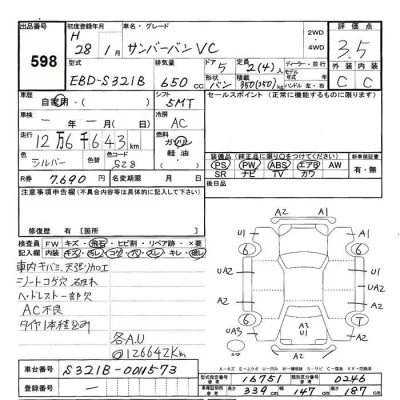 出品番号 598
初度登録年月 H 28年1月
車名・グレード サンバーバン VC
2WD・4WD
評価点 3.5
外装 内装
C C
型式 EBD-S321B
排気量 650 cc
ドア 5
形状 バン
定員 2(4)人
積載 350(250)kg
ディーラー・並行
モデル年式 年
ハンドル 左・右
車歴 自家用・
シフト 5MT
セールスポイント(正常に機能するものに限ります)
車検 ー年ー月
冷房 AC
走行 12万6千643 km
燃料 ガソリン 軽油
色 シルバー
色替
カラーNo. S28
装備品(純正品に限り○をつけてください)
PS PW ABS エアB AW
SR ナビ TV カワ
新車保証書
有・無
R券 7,690
名変期限 月 日
注意事項申告欄(不具合車等は具体的に記入)
修復歴 有( )箇所
検査員記入欄
FW キズ・飛石・ヒビ割・リペア跡・×要
内装 キズ・汚レ・コゲ・穴・スレ・キレ・破レ
車内キバミ、天張リカロエ
シートコゲ穴 破れ
ヘッドレスト一部欠
AC不良
タイヤ1本径違い
各A,U
@126642Km
A2 A1
U1 6 6 A1
UA2 A2
U2 A2
UA3 6 T U2
A3 U1
A2 U1
車台番号 S321B-0011573
登録番号 ー
型式指定番号 16751
類別区分番号 0246
長さ 339 cm
幅 147 cm
高さ 187 cm